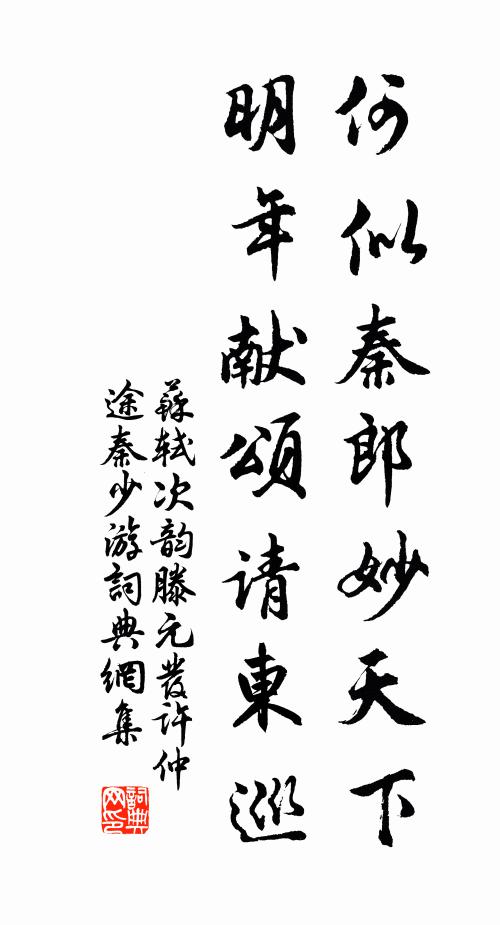 何似秦郎妙天下
明年献頌请東巡
蘇轼次韵滕元發許仲
途秦少游詞典網集
詞典网印